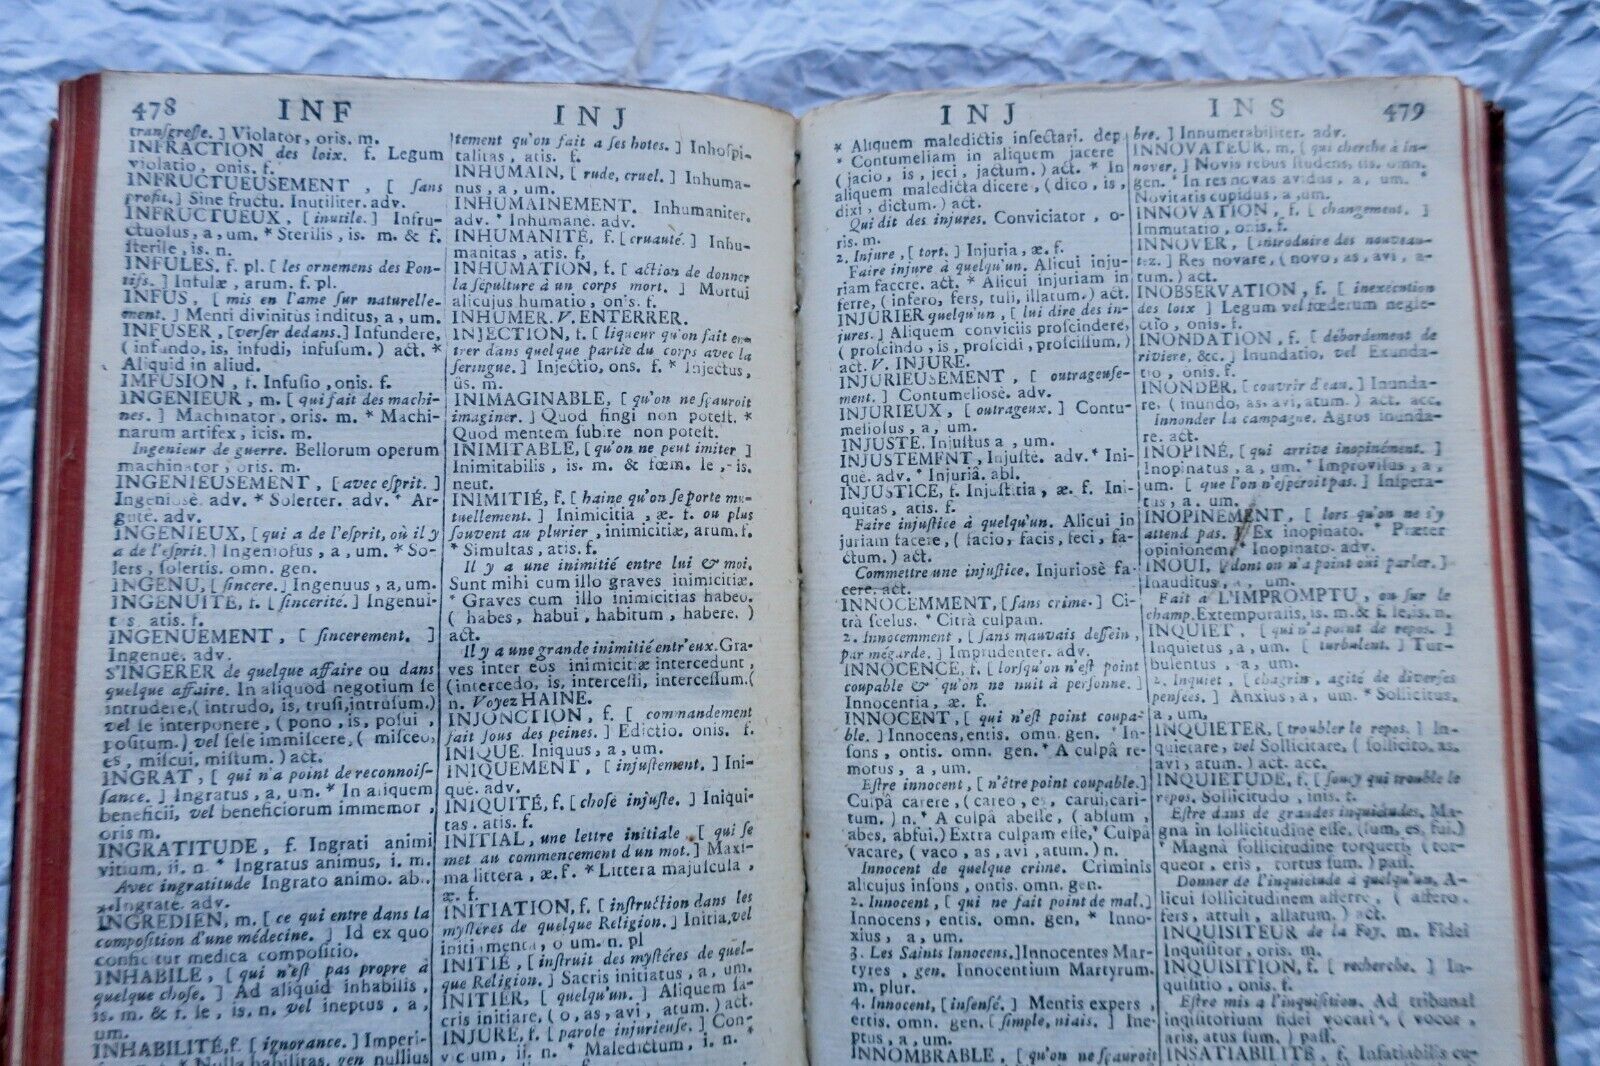 478 INF INJ
transgresse. ] Violator, oris. m.
INFRACTION des loix. f. Legum
violatio, onis. f.
INFRUCTUEUSEMENT , [ sans
profit. ] Sine fructu. Inutiliter. adv.
INFRUCTUEUX, [ inutile. ] Infru-
ctuosus, a, um. * Sterilis, is. m. & f.
sterile, is. n.
INFULES. f. pl. [ les ornemens des Pon-
tifs. ] Infulæ, arum. f. pl.
INFUS, [ mis en l'ame sur naturelle-
ment. ] Menti divinitus inditus, a, um.
INFUSER, [verser dedans.] Infundere,
( infundo, is, infudi, infusum. ) act. *
Aliquid in aliud.
IMFUSION, f. Infusio, onis. f.
INGENIEUR, m. [ qui fait des machi-
nes. ] Machinator, oris. m. * Machi-
narum artifex, icis. m.
Ingenieur de guerre. Bellorum operum
machinator, oris. m.
INGENIEUSEMENT, [ avec esprit. ]
Ingeniosè. adv. * Solerter. adv. * Ar-
gutè. adv.
INGENIEUX, [ qui a de l'esprit, où il y
a de l'esprit. ] Ingeniosus, a, um. * So-
lers, solertis. omn. gen.
INGENU, [ sincere. ] Ingenuus, a, um.
INGENUITÉ, f. [ sincerité. ] Ingenui-
tas, atis. f.
INGENUEMENT , [ sincerement. ]
Ingenue. adv.
S'INGERER de quelque affaire ou dans
quelque affaire. In aliquod negotium se
intrudere, ( intrudo, is, trusi, intrusum. )
vel se interponere, ( pono, is, posui ,
positum. ) vel sese immiscere, ( misceo,
es, miscui, mistum. ) act.
INGRAT, [ qui n'a point de reconnois-
sance. ] Ingratus, a, um. * In aliquem
beneficii, vel beneficiorum immemor ,
oris m.
INGRATITUDE, f. Ingrati animi
vitium, ii. n. * Ingratus animus, i. m.
Avec ingratitude Ingrato animo. abl.
* Ingratè. adv.
INGREDIEN, m. [ ce qui entre dans la
composition d'une médecine. ] Id ex quo
conficitur medica compositio.
INHABILE, [ qui n'est pas propre à
quelque chose. ] Ad aliquid inhabilis ,
is. m. & f. le, is. n. vel ineptus, a ,
um.
INHABILITÉ, f. [ ignorance. ] Imperi-
* Nulla habilitas, gen nullius
tement qu'on fait a ses hotes. ] Inhospi-
talitas, atis. f.
INHUMAIN, [ rude, cruel. ] Inhuma-
nus, a, um.
INHUMAINEMENT. Inhumaniter.
adv. * Inhumane. adv.
INHUMANITÉ, f. [ cruauté. ] Inhu-
manitas, atis. f.
INHUMATION, f. [ action de donner
la sépulture à un corps mort. ] Mortui
alicujus humatio, onis. f.
INHUMER. V. ENTERRER.
INJECTION, f. [ liqueur qu'on fait en-
trer dans quelque partie du corps avec la
seringue. ] Injectio, ons. f. * Injectus,
ûs. m.
INIMAGINABLE, [ qu'on ne sçauroit
imaginer. ] Quod fingi non potest. *
Quod mentem subire non potest.
INIMITABLE, [ qu'on ne peut imiter ]
Inimitabilis, is. m. & fœm. le, is.
neut.
INIMITIÉ, f. [ haine qu'on se porte mu-
tuellement. ] Inimicitia, æ. f. ou plus
souvent au plurier, inimicitiæ, arum. f.
* Simultas, atis. f.
Il y a une inimitié entre lui & moi.
Sunt mihi cum illo graves inimicitiæ.
* Graves cum illo inimicitias habeo.
( habes, habui, habitum, habere. )
act.
Il y a une grande inimitié entr'eux. Gra-
ves inter eos inimicitiæ intercedunt ,
( intercedo, is, intercessi, intercessum. (
n. Voyez HAINE.
INJONCTION, f. [ commandement
fait sous des peines. ] Edictio. onis. f.
INIQUE. Iniquus, a, um.
INIQUEMENT , [ injustement. ] Ini-
què. adv.
INIQUITÉ, f. [ chose injuste. ] Iniqui-
tas. atis. f.
INITIAL, une lettre initiale [ qui se
met au commencement d'un mot. ] Maxi-
ma littera, æ. f. * Littera majuscula ,
æ. f.
INITIATION, f. [ instruction dans les
mystéres de quelque Religion. ] Initia, vel
initiamenta, o um. n. pl
INITIÉ, [ instruit des mystéres de quel-
que Religion. ] Sacris initiatus, a, um.
INITIER, [ quelqu'un. ] Aliquem sa-
cris initiare, ( o, as, avi, atum. ) act.
INJURE, f. [ parole injurieuse. ] Con-
vicium, ii. n. * Maledictum, i. n.
INJ INS 479
* Aliquem maledictis insectari. dep.
* Contumeliam in aliquem jacere
( jacio, is, jeci, jactum. ) act. * In
aliquem maledicta dicere, ( dico, is ,
dixi, dictum. ) act.
Qui dit des injures. Conviciator, o-
ris. m.
2. Injure, [ tort. ] Injuria, æ. f.
Faire injure à quelqu'un. Alicui inju-
riam facere. act. * Alicui injuriam in
ferre, ( infero, fers, tuli, illatum. ) act.
INJURIER quelqu'un, [ lui dire des in-
jures. ] Aliquem conviciis proscindere,
( proscindo, is, proscidi, proscissum. )
act. V. INJURE.
INJURIEUSEMENT , [ outrageuse-
ment. ] Contumeliosè. adv.
INJURIEUX, [ outrageux. ] Contu-
meliosus, a, um.
INJUSTE. Injustus a, um.
INJUSTEMENT, Injustè. adv. * Ini-
què. adv. * Injuriâ. abl.
INJUSTICE, f. Injustitia, æ. f. Ini-
quitas, atis. f.
Faire injustice à quelqu'un. Alicui in
juriam facere, ( facio, facis, feci, fa-
ctum. ) act.
Commettre une injustice. Injuriosè fa-
cere. act.
INNOCEMMENT, [ sans crime. ] Ci-
trà scelus. * Citrà culpam.
2. Innocemment, [ sans mauvais dessein,
par megarde. ] Imprudenter. adv.
INNOCENCE, f. [ lorsqu'on n'est point
coupable & qu'on ne nuit à personne. ]
Innocentia, æ. f.
INNOCENT, [ qui n'est point coupa-
ble. ] Innocens, entis. omn. gen. * In-
sons, ontis. omn. gen. * A culpâ re-
motus, a, um.
Estre innocent, [ n'être point coupable. ]
Culpâ carere, ( careo, es, carui, cari-
tum. ) n. * A culpâ abesse, ( absum ,
abes, abfui. ) Extra culpam esse, * Culpâ
vacare, ( vaco, as, avi, atum. ) n.
Innocent de quelque crime. Criminis
alicujus insons, ontis. omn. gen.
2. Innocent, [ qui ne fait point de mal. ]
Innocens, entis. omn. gen. * Inno-
xius, a, um.
3. Les Saints Innocens. ] Innocentes Mar-
tyres, gen. Innocentium Martyrum.
m. plur.
4. Innocent, [ insensé. ] Mentis expers ,
ertis. omn. gen. [ simple, niais. ] Ine-
ptus, a, um.
INNOMBRABLE, [ qu'on ne sçauroit
bre. ] Innumerabiliter. adv.
INNOVATEUR. m, [ qui cherche à in-
nover. ] Novis rebus studens, tis. omn.
gen. * In res novas avidus, a, um. *
Novitatis cupidus, a, um.
INNOVATION, f. [ changement. ]
Immutatio, onis. f.
INNOVER, [ introduire des nouveau-
tez. ] Res novare, ( novo, as, avi, a-
tum. ) act.
INOBSERVATION, f. [ inexécution
des loix ] Legum vel fœderum negle-
ctio, onis. f.
INONDATION, f. [ débordement de
riviére, &c. ] Inundatio, vel Exunda-
tio, onis. f.
INONDER, [ couvrir d'eau. ] Inunda-
re, ( inundo, as, avi, atum. ) act. acc.
Innonder la campagne. Agros inunda-
re. act.
INOPINÉ, [ qui arrive inopinément. ]
Inopinatus, a, um. * Improvisus, a,
um. [ que l'on n'esperoit pas. ] Inspera-
tus, a, um.
INOPINEMENT, [ lors qu'on ne s'y
attend pas. ] Ex inopinato. * Præter
opinionem * Inopinato. adv.
INOUI, [ dont on n'a point oui parler. ]
Inauditus, a, um.
Fait à L'IMPROMPTU, ou sur le
champ. Extemporalis, is. m. & f. le, is. n.
INQUIET, [ qui n'a point de repos. ]
Inquietus, a, um. [ turbulent. ] Tur-
bulentus, a, um.
2. Inquiet, [ chagrin, agité de diverses
pensées. ] Anxius, a, um. * Sollicitus,
a, um,
INQUIETER, [ troubler le repos. ] In-
quietare, vel Sollicitare, ( sollicito, as,
avi, atum. ) act. acc.
INQUIETUDE, f. [ soucy qui trouble le
repos. Sollicitudo, inis. f.
Estre dans de grandes inquiétudes. Ma-
gna in sollicitudine esse. ( sum, es, fui. )
* Magnâ sollicitudine torqueri, ( tor-
queor, eris, tortus sum. ) pass.
Donner de l'inquiétude à quelqu'un, A-
licui sollicitudinem afferre, ( affero,
fers, attuli, allatum. ) act.
INQUISITEUR de la Foy. m. Fidei
Inquisitor, oris. m.
INQUISITION, f. [ recherche. ] In-
quisitio, onis. f.
Estre mis a l'inquisition. Ad tribunal
inquisitorum fidei vocari, ( vocor,
aris, atus sum. ) pass.
INSATIABILITÉ, f. Insatiabilis cu-